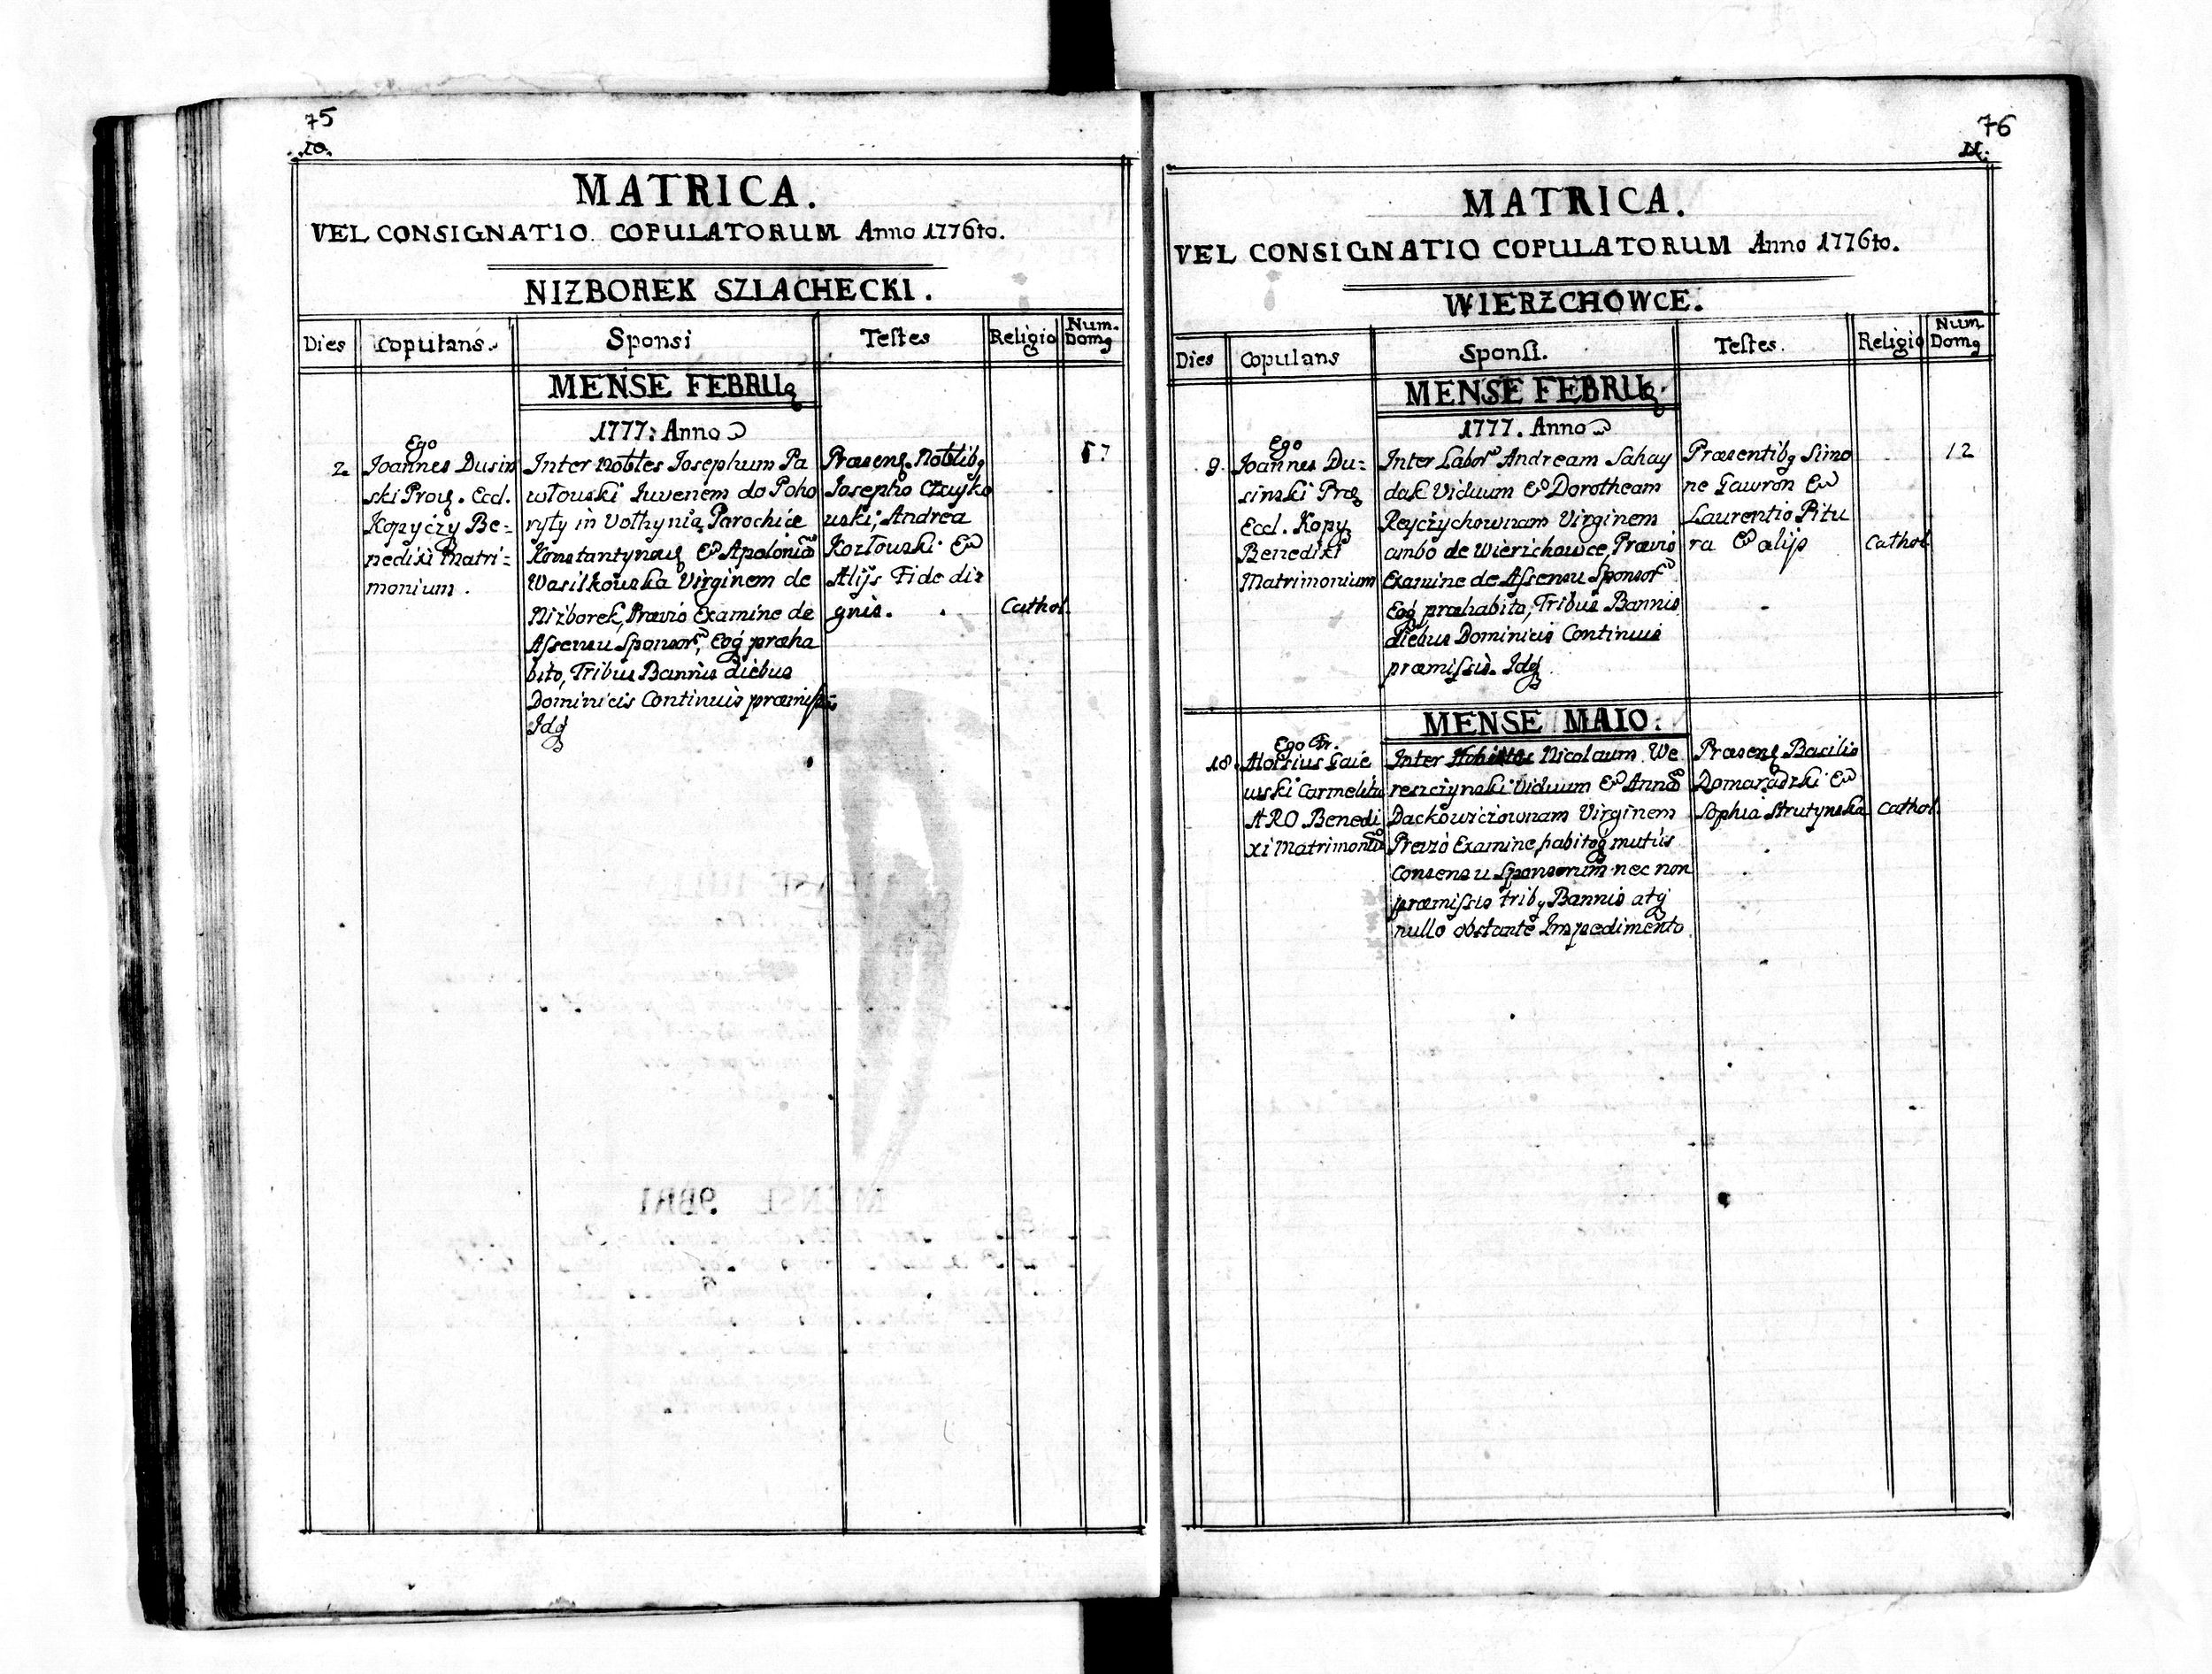 75
10.
MATRICA.
VEL CONSIGNATIO COPULATORUM Anno 1776to.
NIZBOREK SZLACHECKI.
Dies
Copulans.
Sponsi
Testes
Religio
Num. Domq
MENSE FEBRUq
1777: Anno
2.
Ego
Joannes Dusin
ski Proq. Eccl.
Kopyczy Be-
nedixi Matri-
monium.
Inter Nobles Josephum Pa
włowski Iuvenem do Poho
ryły in Vothynią Parochiæ
Konstantynouq & Apolonia
Wasilkowska Virginem de
Nizborek, Prævio Examine de
Assensu Sponsor, Eoq præha
bito, Tribus Bannis diebus
Dominicis Continuis præmissis
Idq
Præsenq. Nobtibq
Josepho Czayko
wski, Andrea
Kozłowski &
Alijs Fide di
gnis.
Cathol.
57
76
11.
MATRICA.
VEL CONSIGNATIO COPULATORUM Anno 1776to.
WIERZCHOWCE.
Dies
Copulans
Sponsi.
Testes.
Religio
Num. Domq
MENSE FEBRUq.
1777. Anno
9.
Ego
Joannes Du-
sinski Proq
Eccl. Kopyq
Benedixi
Matrimonium
Inter Labor Andream Sahay
dak Viduum & Dorotheam
Reyczychownam Virginem
ambo de Wierichowce, Prævio
Examine de Assensu Sponsor
Eoq præhabito, Tribus Bannis
diebus Dominicis Continuis
præmissis. Idq
Præsentibq Simo
ne Gawron &
Laurentio Pitu
ra & alijs
Cathol
12
MENSE MAIO.
18.
Ego Fr.
Aloisius Gaie
wski Carmelita
ARO Benedi
xi Matrimoniũ
Inter Nicolaum We
reszczynski Viduum & Anna
Dackowiczownam Virginem
Prævio Examine, habitoq mutuis
Consensu Sponsorum nec non
præmissis tribq Bannis atq
nullo obstante Impedimento.
Præsenq Basilio
Domaradzki &
Sophia Strutynska
Cathol.